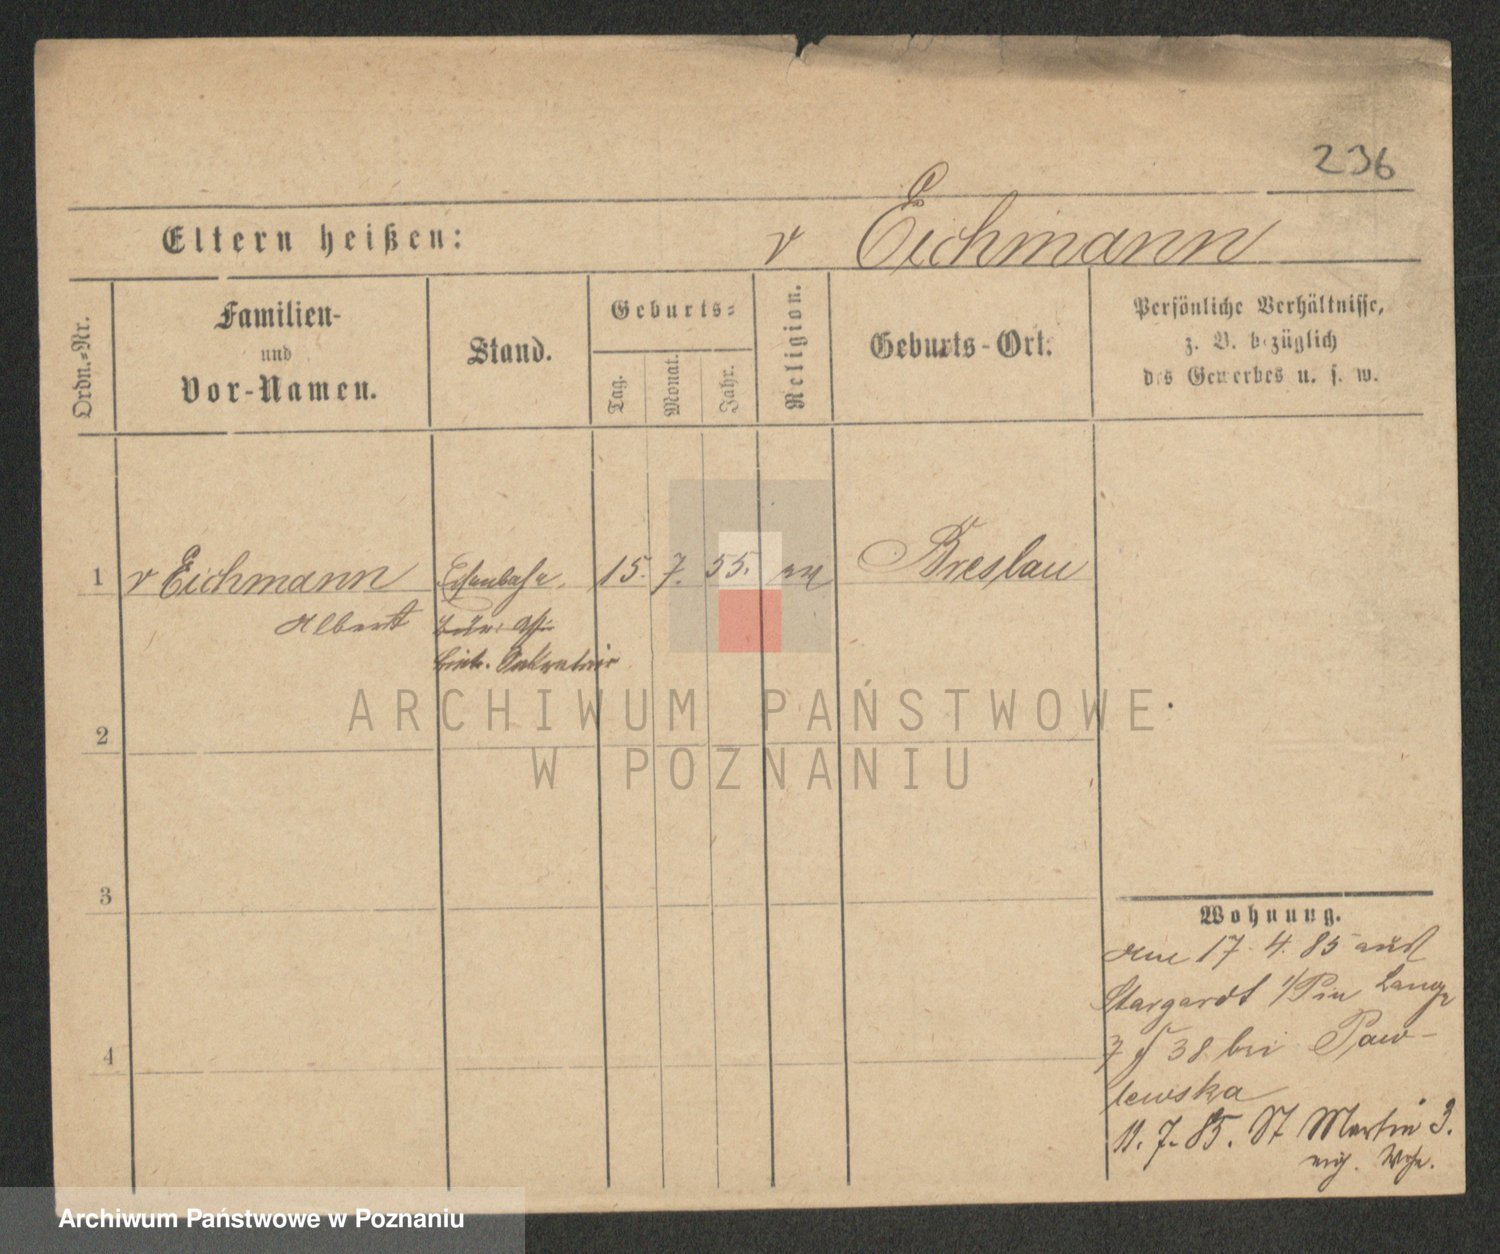 236
Eltern heißen:
v Eichmann
Ordn.-Nr.
Familien-
und
Vor-Namen.
Stand.
Geburts-
Tag.
Monat.
Jahr.
Religion.
Geburts-Ort.
Persönliche Verhältnisse,
z. B. bezüglich
des Gewerbes u. s. w.
1 v Eichmann Eisenbahn. 15. 7. 55. ev Breslau
Albert
Sekretair
ARCHIWUM PAŃSTWOWE
W POZNANIU
2
3
4
Wohnung.
17. 4. 85 aus
Stargardt i/Pm Lange
38 bei Paw-
lewska
11. 7. 85. St Martin 3.
Archiwum Państwowe w Poznaniu